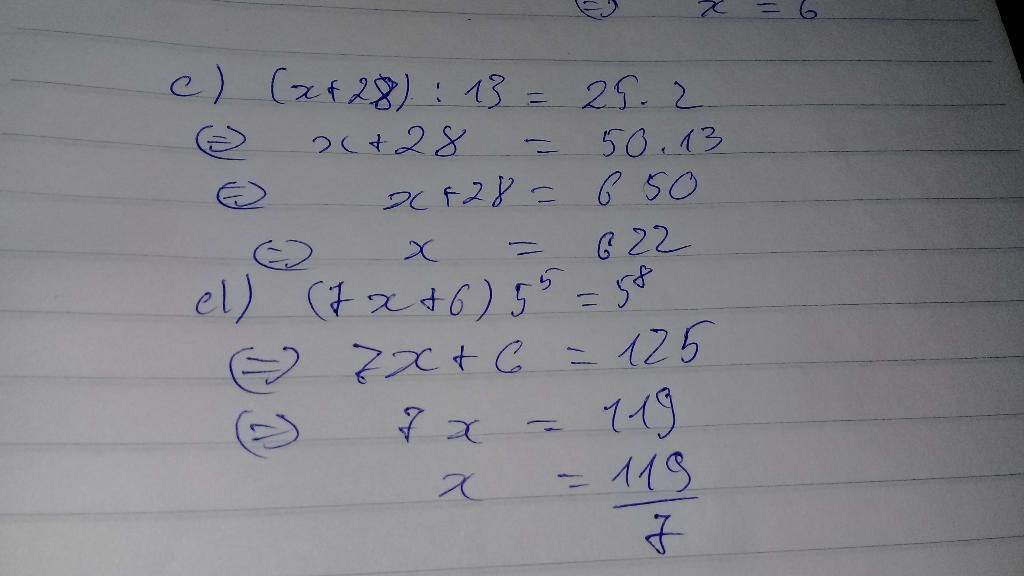 ⇔ x = 6
c) (x+28) : 13 = 25.2
⇔ x+28 = 50.13
⇔ x+28 = 650
⇔ x = 622
d) (7x+6) 5⁵ = 5⁸
⇔ 7x+6 = 125
⇔ 7x = 119
x = 119/7